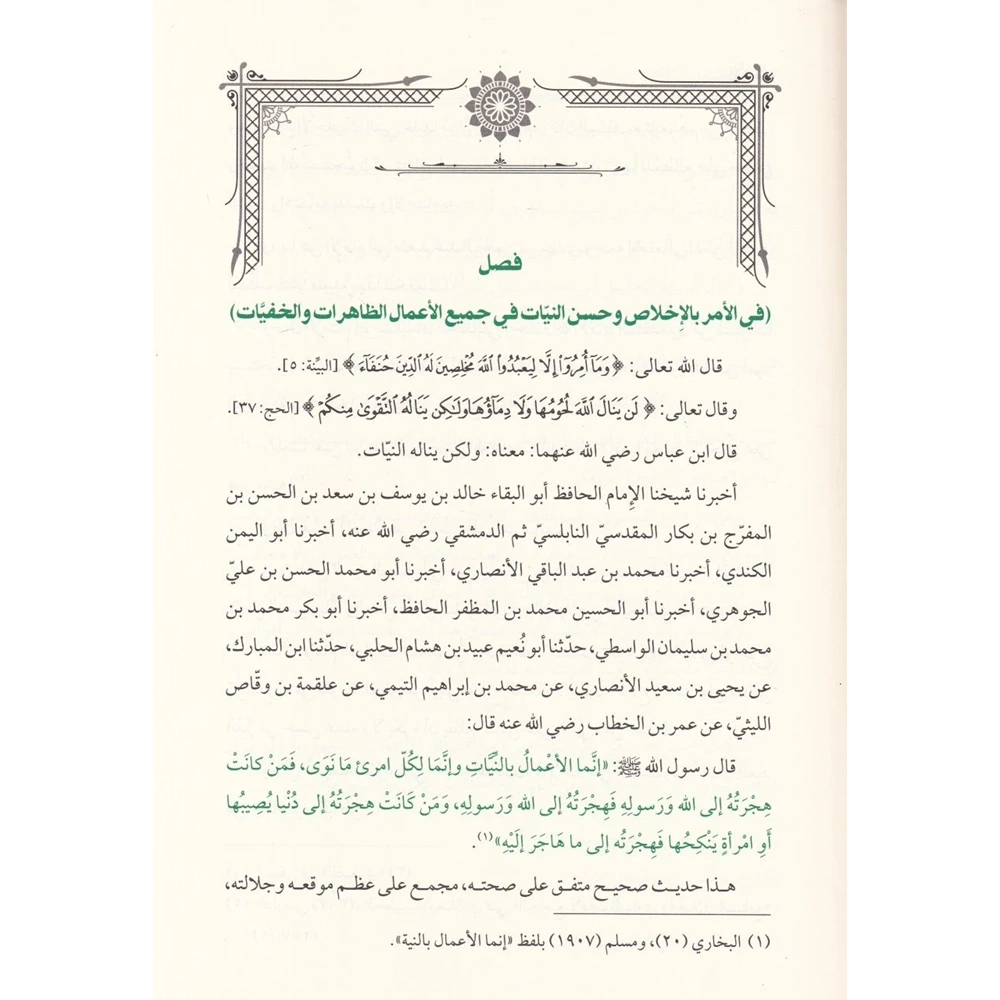 فصل
(في الأمر بالإخلاص وحسن النيّات في جميع الأعمال الظاهرات والخفيَّات)
قال الله تعالى: ﴿وَمَآ أُمِرُوٓا۟ إِلَّا لِيَعْبُدُوا۟ ٱللَّهَ مُخْلِصِينَ لَهُ ٱلدِّينَ حُنَفَآءَ﴾ [البيِّنة: ٥].
وقال تعالى: ﴿لَن يَنَالَ ٱللَّهَ لُحُومُهَا وَلَا دِمَآؤُهَا وَلَٰكِن يَنَالُهُ ٱلتَّقْوَىٰ مِنكُمْ﴾ [الحج: ٣٧].
قال ابن عباس رضي الله عنهما: معناه: ولكن يناله النيّات.
أخبرنا شيخنا الإمام الحافظ أبو البقاء خالد بن يوسف بن سعد بن الحسن بن
المفرّج بن بكار المقدسيّ النابلسيّ ثم الدمشقي رضي الله عنه، أخبرنا أبو اليمن
الكندي، أخبرنا محمد بن عبد الباقي الأنصاري، أخبرنا أبو محمد الحسن بن عليّ
الجوهري، أخبرنا أبو الحسين محمد بن المظفر الحافظ، أخبرنا أبو بكر محمد بن
محمد بن سليمان الواسطي، حدّثنا أبو نُعيم عبيد بن هشام الحلبي، حدّثنا ابن المبارك،
عن يحيى بن سعيد الأنصاري، عن محمد بن إبراهيم التيمي، عن علقمة بن وقّاص
الليثيّ، عن عمر بن الخطاب رضي الله عنه قال:
قال رسول الله ﷺ: «إنَّما الأعْمالُ بالنيِّاتِ وإنَّمَا لِكُلّ امرئ مَا نَوَى، فَمَنْ كانَتْ
هِجْرَتُهُ إلى الله وَرَسولِهِ فَهِجْرَتُهُ إلى الله وَرَسولِهِ، وَمَنْ كَانَتْ هِجْرَتُهُ إلى دُنْيا يُصِيبُها
أَوِ امْرأةٍ يَنْكِحُها فَهِجْرَتُه إلى ما هَاجَرَ إلَيْهِ»(١).
هـذا حديـث صحيـح متفـق على صحتـه، مجمـع على عظـم موقعـه وجلالتـه،
(١) البخاري (٢٠)، ومسلم (١٩٠٧) بلفظ «إنما الأعمال بالنية».